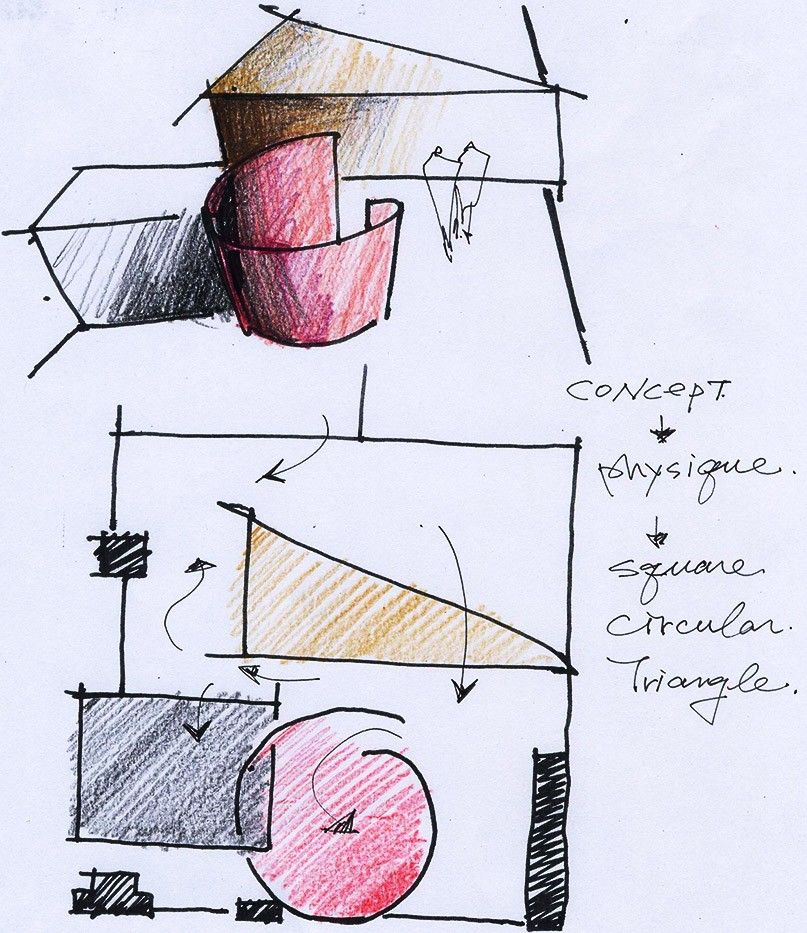 CONCEPT.
physique.
square.
circular.
Triangle.